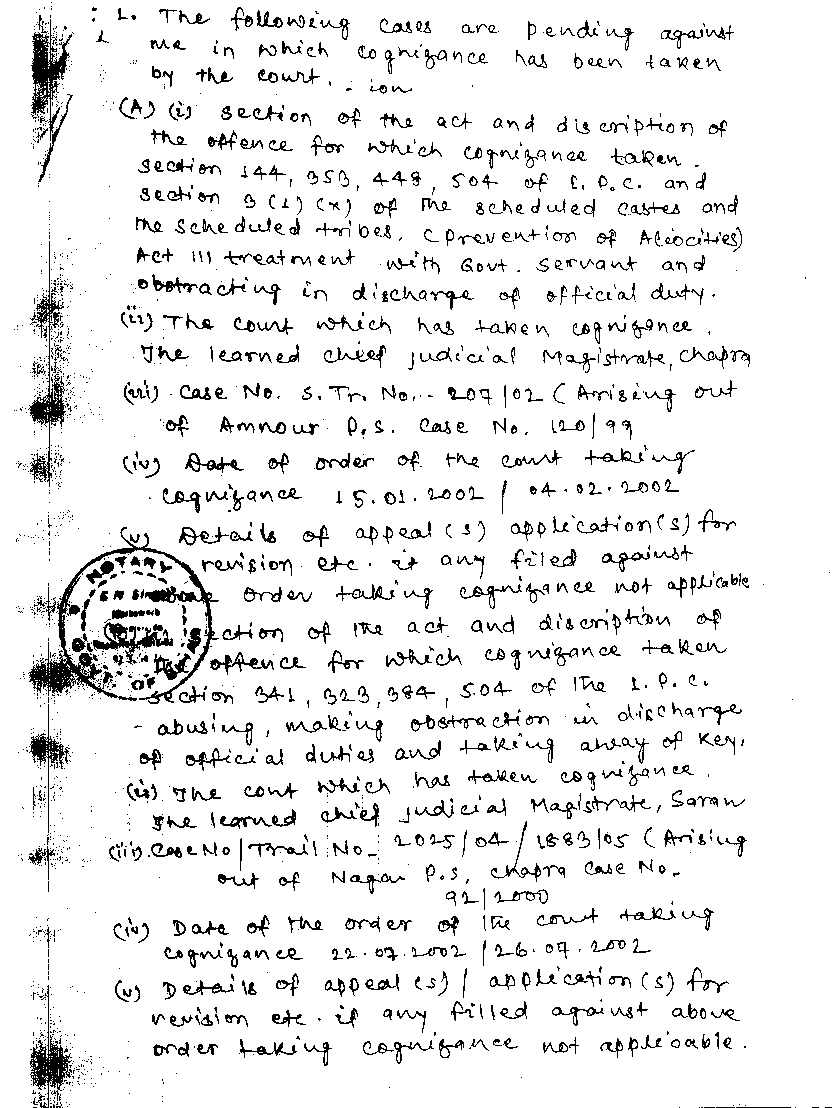 1. The following cases are pending against
me in which cognizance has been taken
by the court. - ion
(A) (i) section of the act and discription of
the offence for which cognizance taken.
section 144, 353, 448, 504 of I.P.C. and
section 3 (1) (x) of the scheduled castes and
the scheduled tribes. (Prevention of Atiocities)
Act Ill treatment with Govt. servant and
obstracting in discharge of official duty.
(ii) The court which has taken cognizance.
The learned chief judicial Magistrate, Chapra
(iii) Case No. S. Tr. No. - 207/02 (Arriseing out
of Amnour P.S. Case No. 120/99
(iv) Date of order of the court taking
cognizance 15.01.2002 / 04.02.2002
(v) Details of appeal(s) application(s) for
revision etc. if any filed against
order taking cognizance not applicable
NOTARY
GOVT. OF
section of the act and discription of
the offence for which cognizance taken
section 341, 323, 384, 504 of the I.P.C.
- abusing, making obstraction in discharge
of official duties and taking away of key.
(ii) The cout which has taken cognizance.
The learned chief judicial Magistrate, Saran
(iii) Case No/Trail No- 2025/04/1883/05 (Arising
out of Nagar P.S, chapra Case No-
92/2000
(iv) Date of the order of the court taking
cognizance 22.07.2002/26.07.2002
(v) Details of appeal(s) / application(s) for
revision etc. if any filled against above
order taking cognizance not applicable.